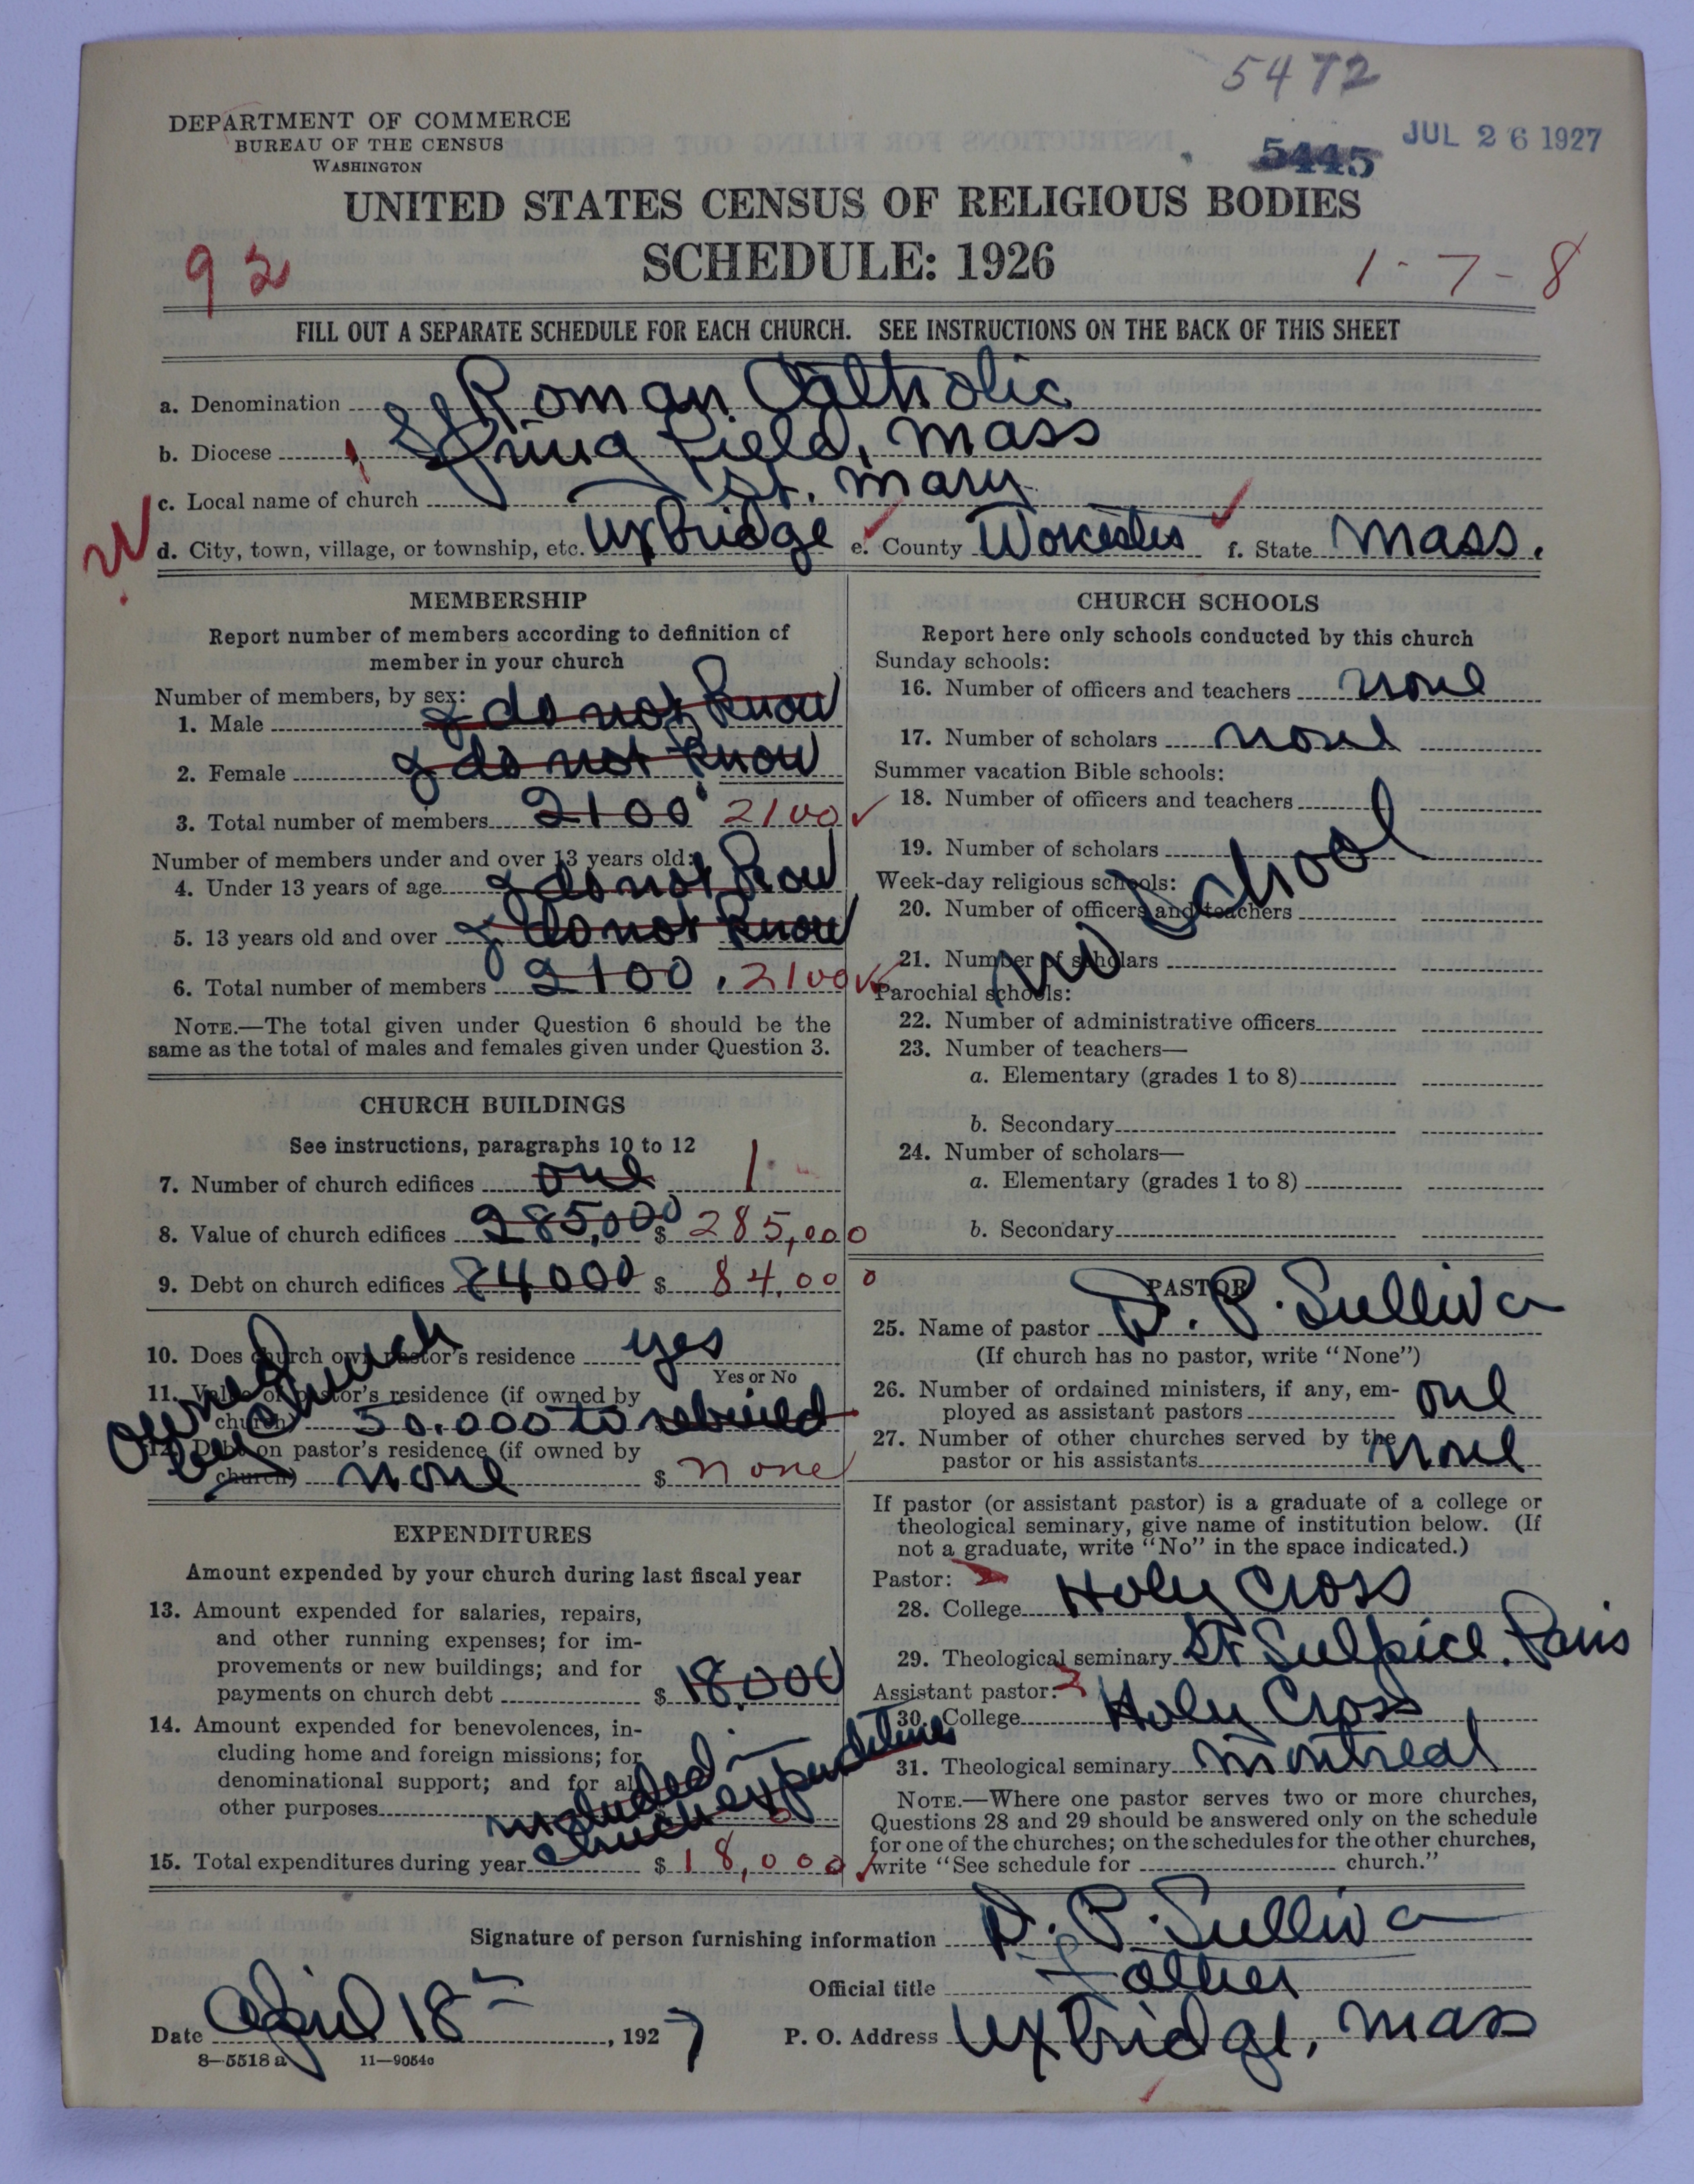 5472
DEPARTMENT OF COMMERCE
BUREAU OF THE CENSUS
WASHINGTON
5445
JUL 26 1927
UNITED STATES CENSUS OF RELIGIOUS BODIES
SCHEDULE: 1926
92
1-7-8
FILL OUT A SEPARATE SCHEDULE FOR EACH CHURCH. SEE INSTRUCTIONS ON THE BACK OF THIS SHEET
a. Denomination Roman Catholic
b. Diocese Springfield, Mass
c. Local name of church St. Mary
d. City, town, village, or township, etc. Uxbridge e. County Worcester f. State Mass.
MEMBERSHIP
Report number of members according to definition of
member in your church
Number of members, by sex:
1. Male I do not know
2. Female I do not know
3. Total number of members 2100 2100
Number of members under and over 13 years old:
4. Under 13 years of age I do not know
5. 13 years old and over I do not know
6. Total number of members 2100. 2100
NOTE.—The total given under Question 6 should be the
same as the total of males and females given under Question 3.
CHURCH BUILDINGS
See instructions, paragraphs 10 to 12
7. Number of church edifices one 1
8. Value of church edifices 285,000 $ 285,000
9. Debt on church edifices 84000 $ 84,000
10. Does church own pastor's residence yes
Yes or No
11. Value of pastor's residence (if owned by
church) 50.000 to rebuild
12. Debt on pastor's residence (if owned by
church) none $ none
owned by church
EXPENDITURES
Amount expended by your church during last fiscal year
13. Amount expended for salaries, repairs,
and other running expenses; for im-
provements or new buildings; and for
payments on church debt $ 18.000
14. Amount expended for benevolences, in-
cluding home and foreign missions; for
denominational support; and for all
other purposes included in
church expenditures
15. Total expenditures during year $ 18,000
CHURCH SCHOOLS
Report here only schools conducted by this church
Sunday schools:
16. Number of officers and teachers none
17. Number of scholars none
Summer vacation Bible schools:
18. Number of officers and teachers
19. Number of scholars
Week-day religious schools:
20. Number of officers and teachers
21. Number of scholars
no school
Parochial schools:
22. Number of administrative officers
23. Number of teachers—
a. Elementary (grades 1 to 8)
b. Secondary
24. Number of scholars—
a. Elementary (grades 1 to 8)
b. Secondary
PASTOR
25. Name of pastor D. P. Sulliva
(If church has no pastor, write "None")
26. Number of ordained ministers, if any, em-
ployed as assistant pastors one
27. Number of other churches served by the
pastor or his assistants none
If pastor (or assistant pastor) is a graduate of a college or
theological seminary, give name of institution below. (If
not a graduate, write "No" in the space indicated.)
Pastor:
28. College Holy Cross
29. Theological seminary St Sulpice. Paris
Assistant pastor:
30. College Holy Cross
31. Theological seminary Montreal
NOTE.—Where one pastor serves two or more churches,
Questions 28 and 29 should be answered only on the schedule
for one of the churches; on the schedules for the other churches,
write "See schedule for church."
Signature of person furnishing information D. P. Sulliva
Official title Father
Date April 18th, 1927 P. O. Address Uxbridge, Mass
8—5518 a 11—9054c